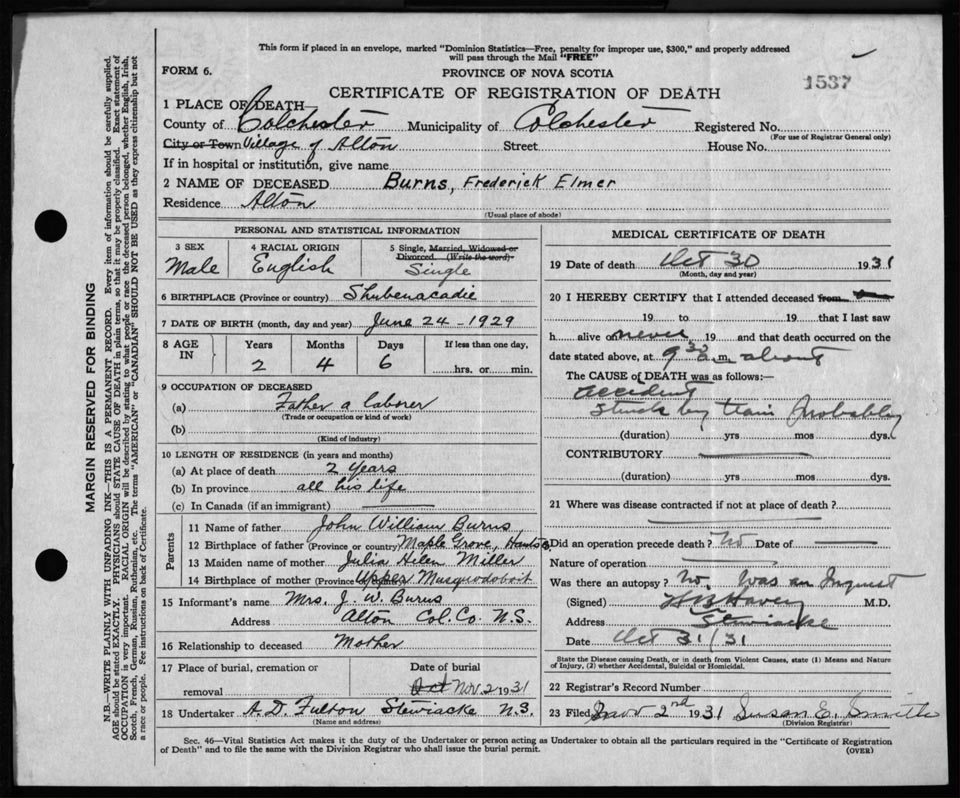 This form if placed in an envelope, marked "Dominion Statistics—Free, penalty for improper use, $300," and properly addressed
will pass through the Mail "FREE"
FORM 6.
PROVINCE OF NOVA SCOTIA
1537
CERTIFICATE OF REGISTRATION OF DEATH
1 PLACE OF DEATH—
County of Colchester Municipality of Colchester Registered No.
(For use of Registrar General only)
City or Town Village of Alton Street House No.
If in hospital or institution, give name
2 NAME OF DECEASED Burns, Frederick Elmer
Residence Alton
(Usual place of abode)
PERSONAL AND STATISTICAL INFORMATION
3 SEX
Male
4 RACIAL ORIGIN
English
5 Single, Married, Widowed or
Divorced. (Write the word)
Single
6 BIRTHPLACE (Province or country) Shubenacadie
7 DATE OF BIRTH (month, day and year) June 24 - 1929
8 AGE IN
Years Months Days If less than one day,
2 4 6 hrs. or min.
9 OCCUPATION OF DECEASED
(a) Father a laborer
(Trade or occupation or kind of work)
(b)
(Kind of industry)
10 LENGTH OF RESIDENCE (in years and months)
(a) At place of death 2 years
(b) In province all his life
(c) In Canada (if an immigrant)
Parents
11 Name of father John William Burns
12 Birthplace of father (Province or country) Maple Grove, Hants
13 Maiden name of mother Julia Miller
14 Birthplace of mother (Province Upper Musquodoboit
15 Informant's name Mrs. J. W. Burns
Address Alton Col. Co. N.S.
16 Relationship to deceased Mother
17 Place of burial, cremation or Date of burial
removal Oct Nov. 2 1931
18 Undertaker A. D. Fulton Stewiacke N.S.
(Name and address)
MEDICAL CERTIFICATE OF DEATH
19 Date of death Oct 30 1931
(Month, day and year)
20 I HEREBY CERTIFY that I attended deceased from
19 to 19 that I last saw
h alive on never 19 and that death occurred on the
date stated above, at 9 a.m. about
The CAUSE of DEATH was as follows:—
Accident
Struck by train Probably
(duration) yrs mos dys.
CONTRIBUTORY
(duration) yrs mos dys.
21 Where was disease contracted if not at place of death?
Did an operation precede death? No Date of
Nature of operation
Was there an autopsy? No. Was an Inquest
(Signed) M.D.
Address Stewiacke
Date Oct 31/31
State the Disease causing Death, or in death from Violent Causes, state (1) Means and Nature
of Injury, (2) whether Accidental, Suicidal or Homicidal.
22 Registrar's Record Number
23 Filed Nov 2nd 1931 Susan E. Smith
(Division Registrar)
Sec. 46—Vital Statistics Act makes it the duty of the Undertaker or person acting as Undertaker to obtain all the particulars required in the "Certificate of Registration
of Death" and to file the same with the Division Registrar who shall issue the burial permit.
(OVER)
MARGIN RESERVED FOR BINDING
N.B.—WRITE PLAINLY WITH UNFADING INK—THIS IS A PERMANENT RECORD. Every item of information should be carefully supplied.
AGE should be stated EXACTLY. PHYSICIANS should STATE CAUSE OF DEATH in plain terms, so that it may be properly classified. Exact statement of
OCCUPATION is very important. RACIAL ORIGIN will be described by stating to what people or race the deceased person belonged, whether English, Irish,
Scotch, French, German, Russian, Ruthenian, etc. The terms "AMERICAN" or "CANADIAN" SHOULD NOT BE USED as they express citizenship but not
a race or people. See instructions on back of Certificate.